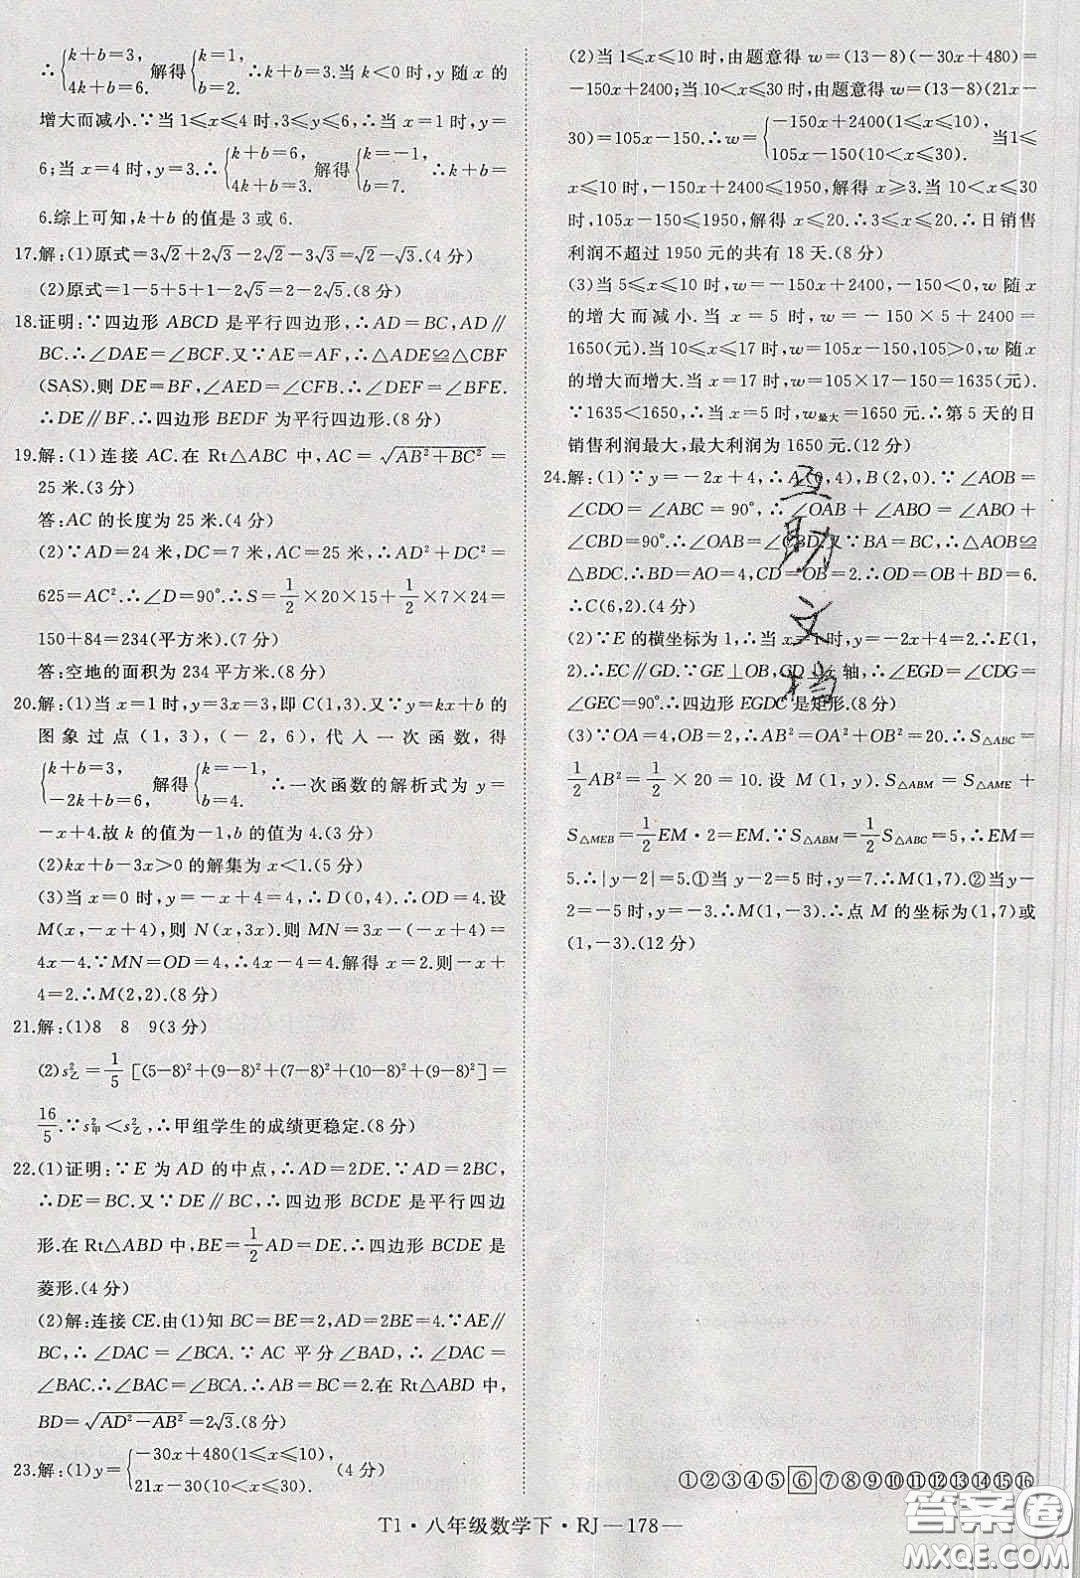 ∴{k+b=3, 4k+b=6. 解得{k=1, b=2. ∴k+b=3.当 k<0 时,y 随 x 的
增大而减小.∵当 1≤x≤4 时,3≤y≤6,∴当 x=1 时,y=
6;当 x=4 时,y=3.∴{k+b=6, 4k+b=3. 解得{k=-1, b=7. ∴k+b=
6.综上可知,k+b 的值是 3 或 6.
17.解:(1)原式=3√2+2√3-2√2-3√3=√2-√3.(4分)
(2)原式=1-5+5+1-2√5=2-2√5.(8分)
18.证明:∵四边形 ABCD 是平行四边形,∴AD=BC,AD∥
BC.∴∠DAE=∠BCF.又∵AE=AF,∴△ADE≌△CBF
(SAS).则 DE=BF,∠AED=∠CFB.∴∠DEF=∠BFE.
∴DE∥BF.∴四边形 BEDF 为平行四边形.(8分)
19.解:(1)连接 AC.在 Rt△ABC 中,AC=√(AB²+BC²)=
25 米.(3分)
答:AC 的长度为 25 米.(4分)
(2)∵AD=24 米,DC=7 米,AC=25 米,∴AD²+DC²=
625=AC².∴∠D=90°.∴S=1/2×20×15+1/2×7×24=
150+84=234(平方米).(7分)
答:空地的面积为 234 平方米.(8分)
20.解:(1)当 x=1 时,y=3x=3,即 C(1,3).又∵y=kx+b 的
图象过点(1,3),(-2,6),代入一次函数,得
{k+b=3, -2k+b=6. 解得{k=-1, b=4. ∴一次函数的解析式为 y=
-x+4.故 k 的值为-1,b 的值为 4.(3分)
(2)kx+b-3x>0 的解集为 x<1.(5分)
(3)当 x=0 时,y=-x+4=4,∴D(0,4).∴OD=4.设
M(x,-x+4),则 N(x,3x).则 MN=3x-(-x+4)=
4x-4.∵MN=OD=4,∴4x-4=4.解得 x=2.则-x+
4=2.∴M(2,2).(8分)
21.解:(1)8 8 9(3分)
(2)s²乙=1/5[(5-8)²+(9-8)²+(7-8)²+(10-8)²+(9-8)²]=
16/5.∵s²甲<s²乙,∴甲组学生的成绩更稳定.(8分)
22.(1)证明:∵E 为 AD 的中点,∴AD=2DE.∵AD=2BC,
∴DE=BC.又∵DE∥BC,∴四边形 BCDE 是平行四边
形.在 Rt△ABD 中,BE=1/2AD=DE.∴四边形 BCDE 是
菱形.(4分)
(2)解:连接 CE.由(1)知 BC=BE=2,AD=2BE=4.∵AE∥
BC,∴∠DAC=∠BCA.∵AC 平分∠BAD,∴∠DAC=
∠BAC.∴∠BAC=∠BCA.∴AB=BC=2.在 Rt△ABD 中,
BD=√(AD²-AB²)=2√3.(8分)
23.解:(1)y={-30x+480(1≤x≤10), 21x-30(10<x≤30). (4分)
(2)当 1≤x≤10 时,由题意得 w=(13-8)(-30x+480)=
-150x+2400;当 10<x≤30 时,由题意得 w=(13-8)(21x-
30)=105x-150.∴w={-150x+2400(1≤x≤10), 105x-150(10<x≤30). 当 1≤
x≤10 时,-150x+2400≤1950,解得 x≥3.当 10<x≤30
时,105x-150≤1950,解得 x≤20.∴3≤x≤20.∴日销售
利润不超过 1950 元的共有 18 天.(8分)
(3)当 5≤x≤10 时,w=-150x+2400,-150<0,w 随 x
的增大而减小.当 x=5 时,w=-150×5+2400=
1650(元).当 10<x≤17 时,w=105x-150,105>0,w 随 x
的增大而增大.当 x=17 时,w=105×17-150=1635(元).
∵1635<1650,∴当 x=5 时,w最大=1650 元.∴第 5 天的日
销售利润最大,最大利润为 1650 元.(12分)
24.解:(1)∵y=-2x+4,∴A(0,4),B(2,0).∵∠AOB=
∠CDO=∠ABC=90°,∴∠OAB+∠ABO=∠ABO+
∠CBD=90°.∴∠OAB=∠CBD.又∵BA=BC,∴△AOB≌
△BDC.∴BD=AO=4,CD=OB=2.∴OD=OB+BD=6.
∴C(6,2).(4分)
(2)∵E 的横坐标为 1,∴当 x=1时,y=-2x+4=2.∴E(1,
2).∴EC∥GD.∵GE⊥OB,CD⊥x轴,∴∠EGD=∠CDG=
∠GEC=90°.∴四边形 EGDC 是矩形.(8分)
(3)∵OA=4,OB=2,∴AB²=OA²+OB²=20.∴S△ABC=
1/2AB²=1/2×20=10.设 M(1,y).∵S△ABM=S△AME+
S△MEB=1/2EM·2=EM.∵S△ABM=1/2S△ABC=5,∴EM=
5.∴|y-2|=5.①当 y-2=5时,y=7.∴M(1,7).②当 y-
2=-5 时,y=-3.∴M(1,-3).∴点 M 的坐标为(1,7)或
(1,-3).(12分)
互助文档
①②③④⑤⑥⑦⑧⑨⑩⑪⑫⑬⑭⑮⑯
T1·八年级数学下·RJ—178—
答案圈
MXQE.COM